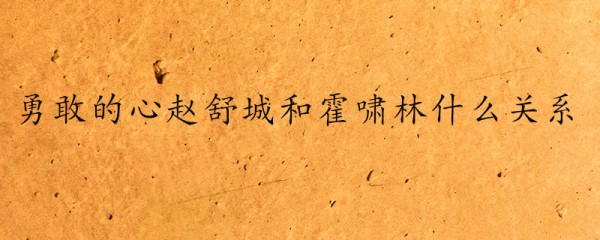 勇敢的心赵舒城和霍啸林什么关系